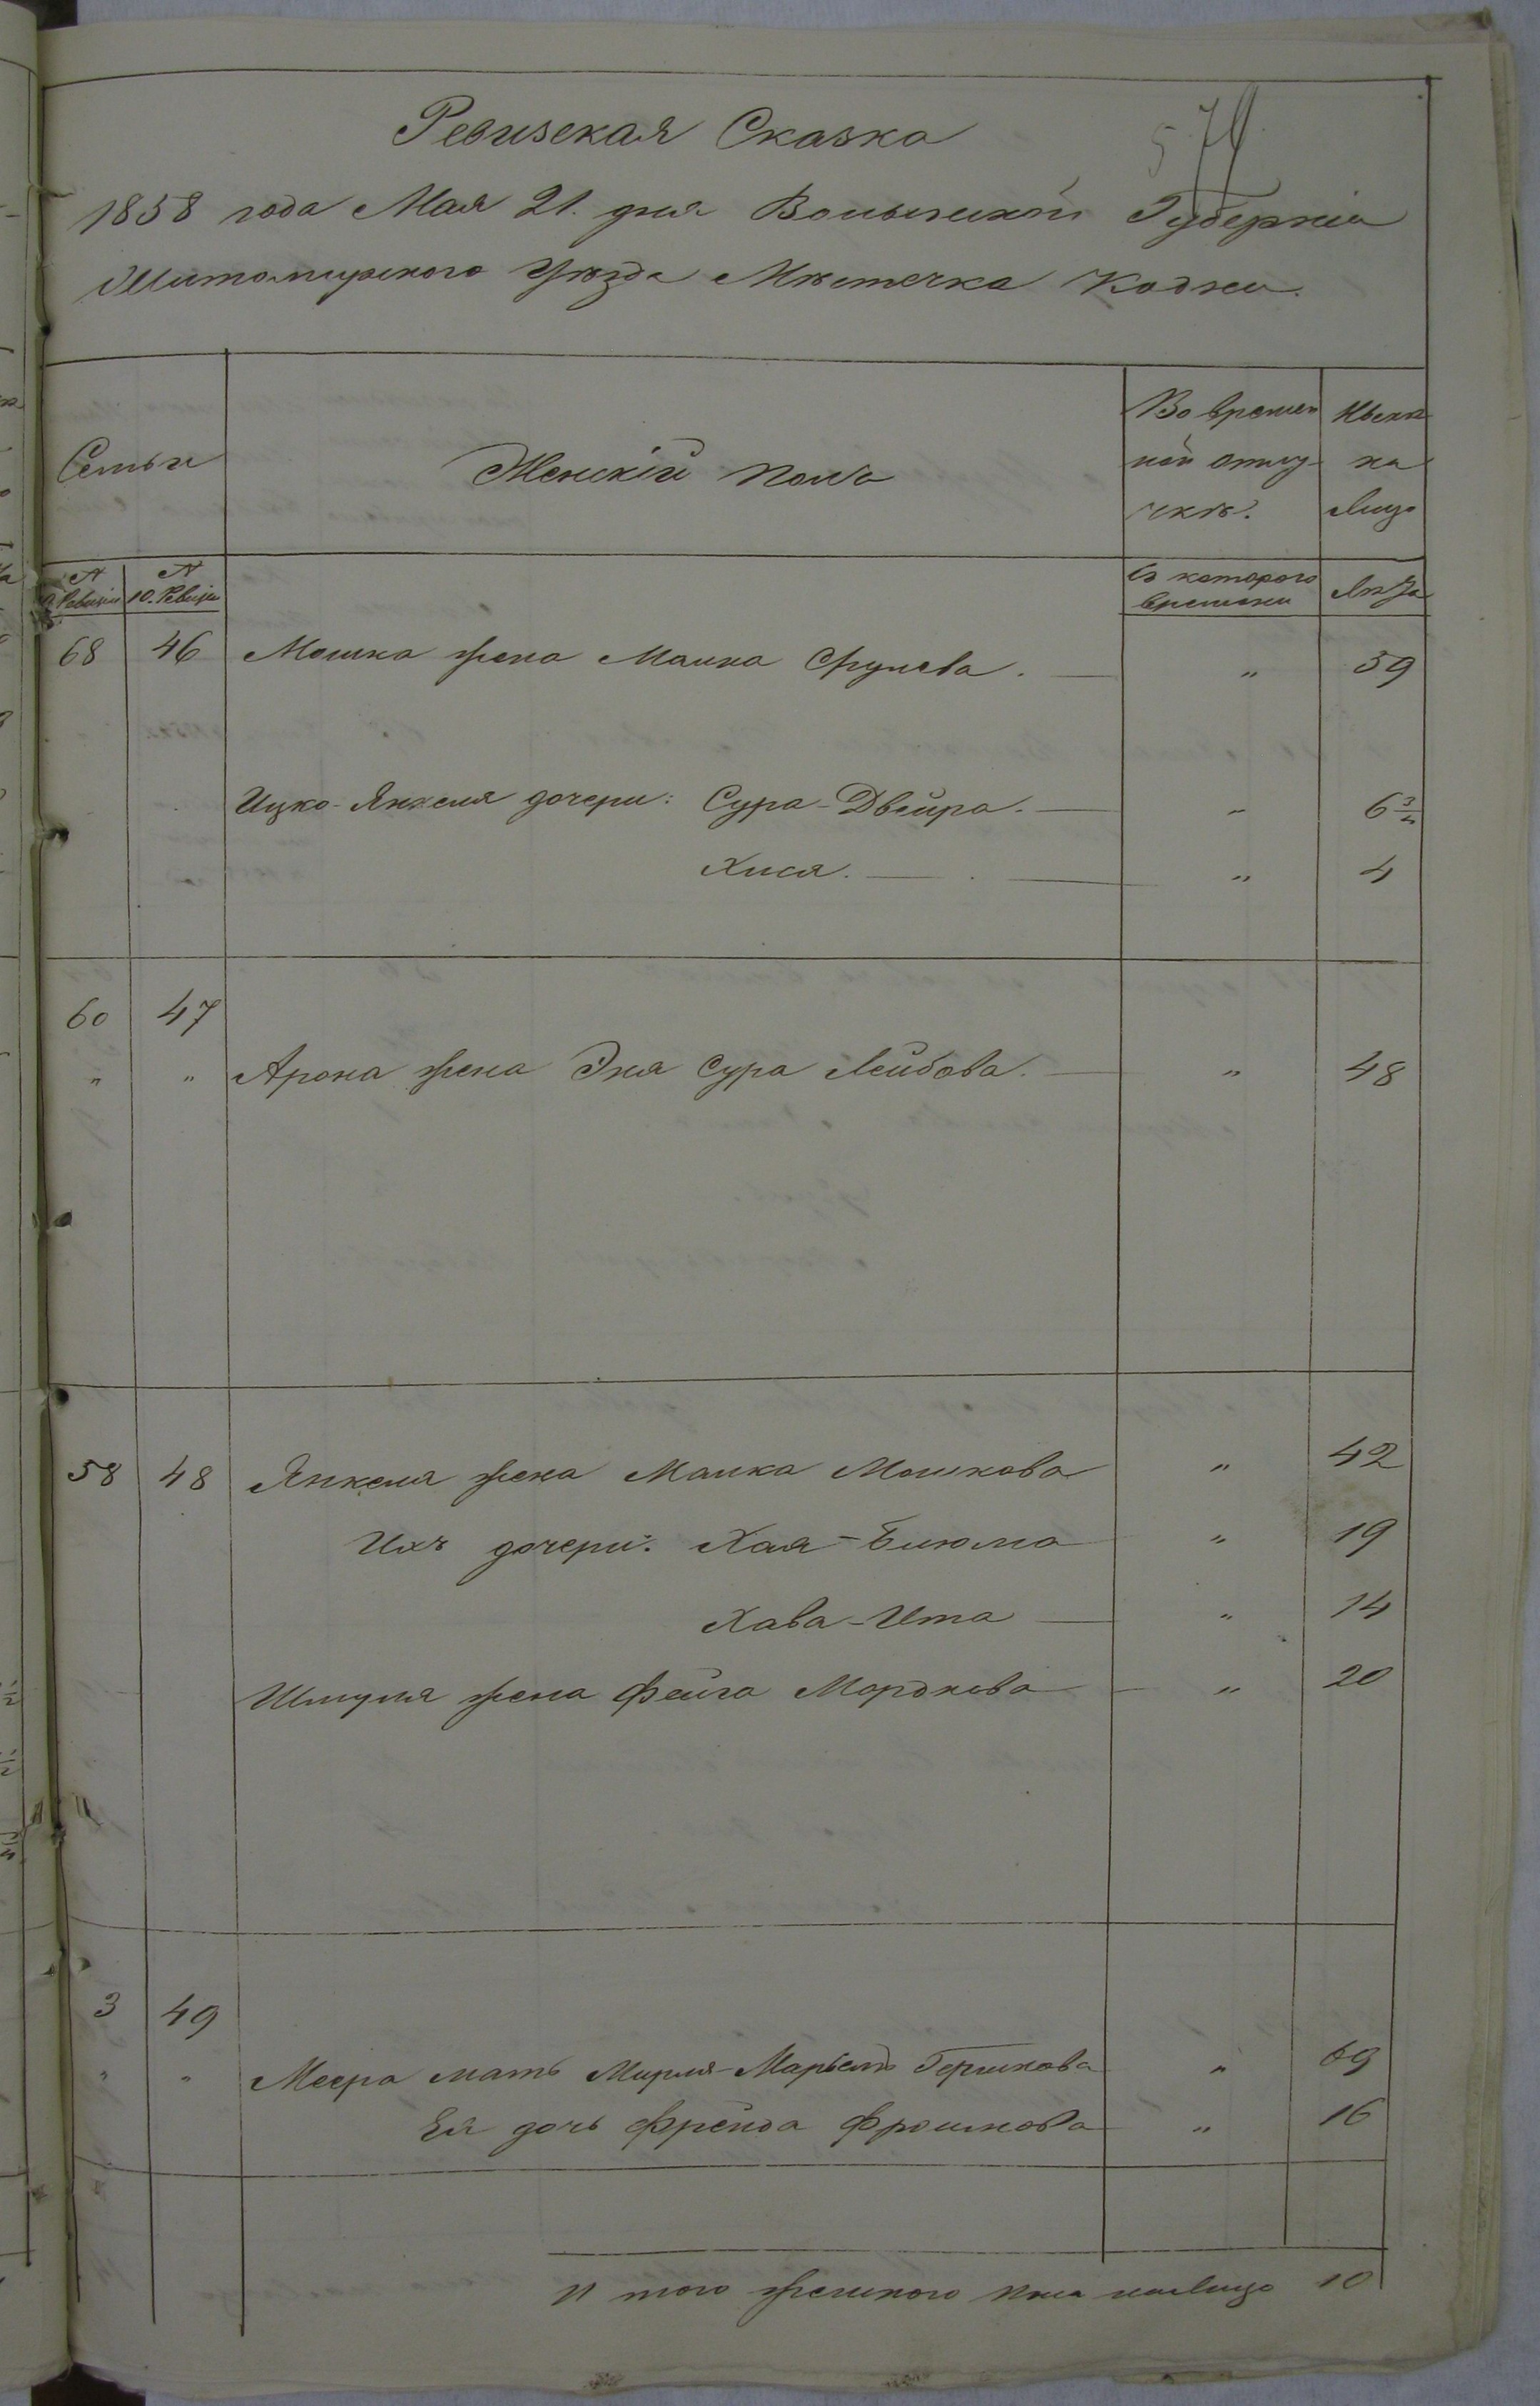 Ревизская Сказка
57
1858 года Мая 21. дня Волынской Губерніи
Житомирского Уѣзда Мѣстечка Кодни.
Семьи
Женскій полъ
Во времен
ной отлу-
чкѣ.
Нынѣ
на
лицо
№
9. Ревизіи
№
10. Ревизіи
Съ которого
времени
Лѣта
68 46 Мошка жена Малка Срулева. " 39
Ицко-Янкеля дочери: Сура-Двейра. " 6 3/4
Хися. " 4
60 47
" " Арона жена Эня Сура Лейбова. " 48
58 48 Янкеля жена Малка Мошкова " 42
Ихъ дочери: Хая-Блюма " 19
Хава-Ита " 14
Шмуля жена Фейга Мордкова " 20
3 49
" " Меера мать Мирля-Марьемъ Гершкова " 69
Ея дочь Фрейда Фроимова " 16
И того женского пола налицо 10